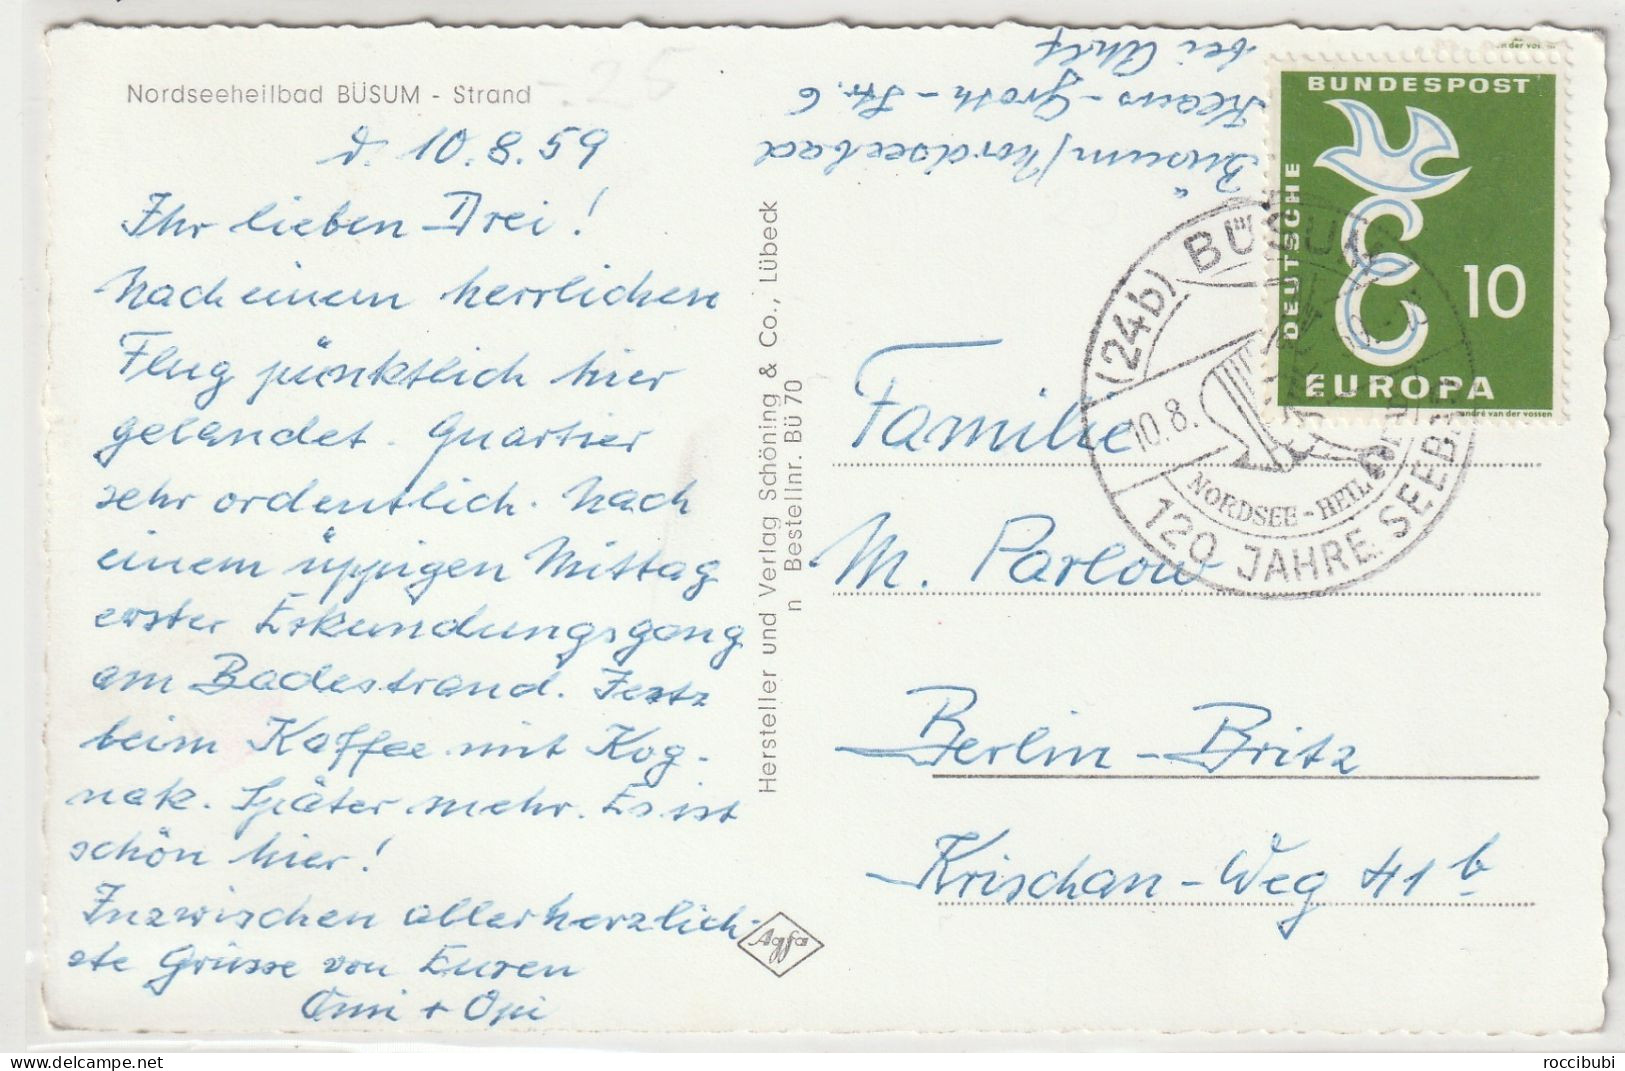 Nordseeheilbad BÜSUM - Strand
-.25
d. 10.8.59
Ihr lieben Drei!
Nach einem herrlichen
Flug pünktlich hier
gelandet. Quartier
sehr ordentlich. Nach
einem üppigen Mittag
erster Erkundungsgang
am Badestrand. Jetzt
beim Kaffee mit Kog-
nak. Später mehr. Es ist
schön hier!
Inzwischen allerherzlich-
ste Grüsse von Euren
Omi + Opi
Hersteller und Verlag Schöning & Co., Lübeck
n Bestellnr. Bü 70
Agfa
Büsum/Nordseebad
Klaus-Groth-Str. 6
bei
DEUTSCHE
BUNDESPOST
10
EUROPA
andré van der vossen
(24b) BÜSUM
10.8.
NORDSEE-HEILBAD
120 JAHRE SEEBAD
Familie
M. Parlow
Berlin-Britz
Krischan-Weg 41b
roccibubi